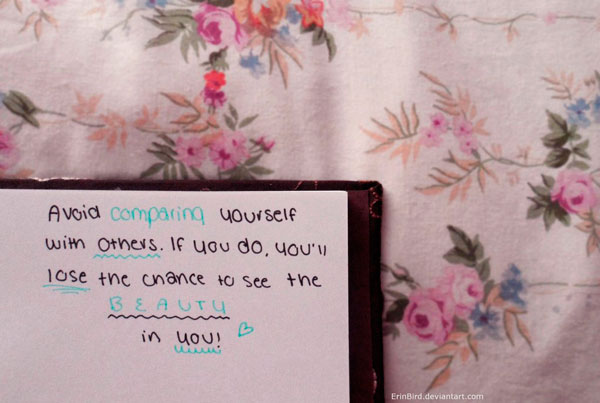 Avoid comparing yourself
with others. If you do, you'll
lose the chance to see the
BEAUTY
in you!
ErinBird.deviantart.com